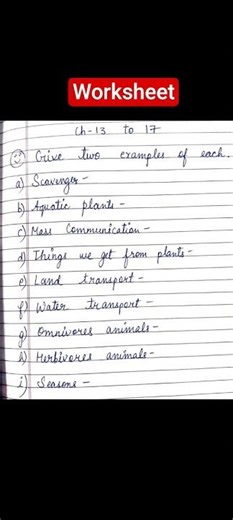 Worksheet
Ch-13 to 17
Give two examples of each.
a) Scavenger -
b) Aquatic plants -
c) Mass Communication -
d) Things we get from plants -
e) Land transport -
f) Water transport -
g) Omnivores animals -
h) Herbivores animals -
i) Seasons -